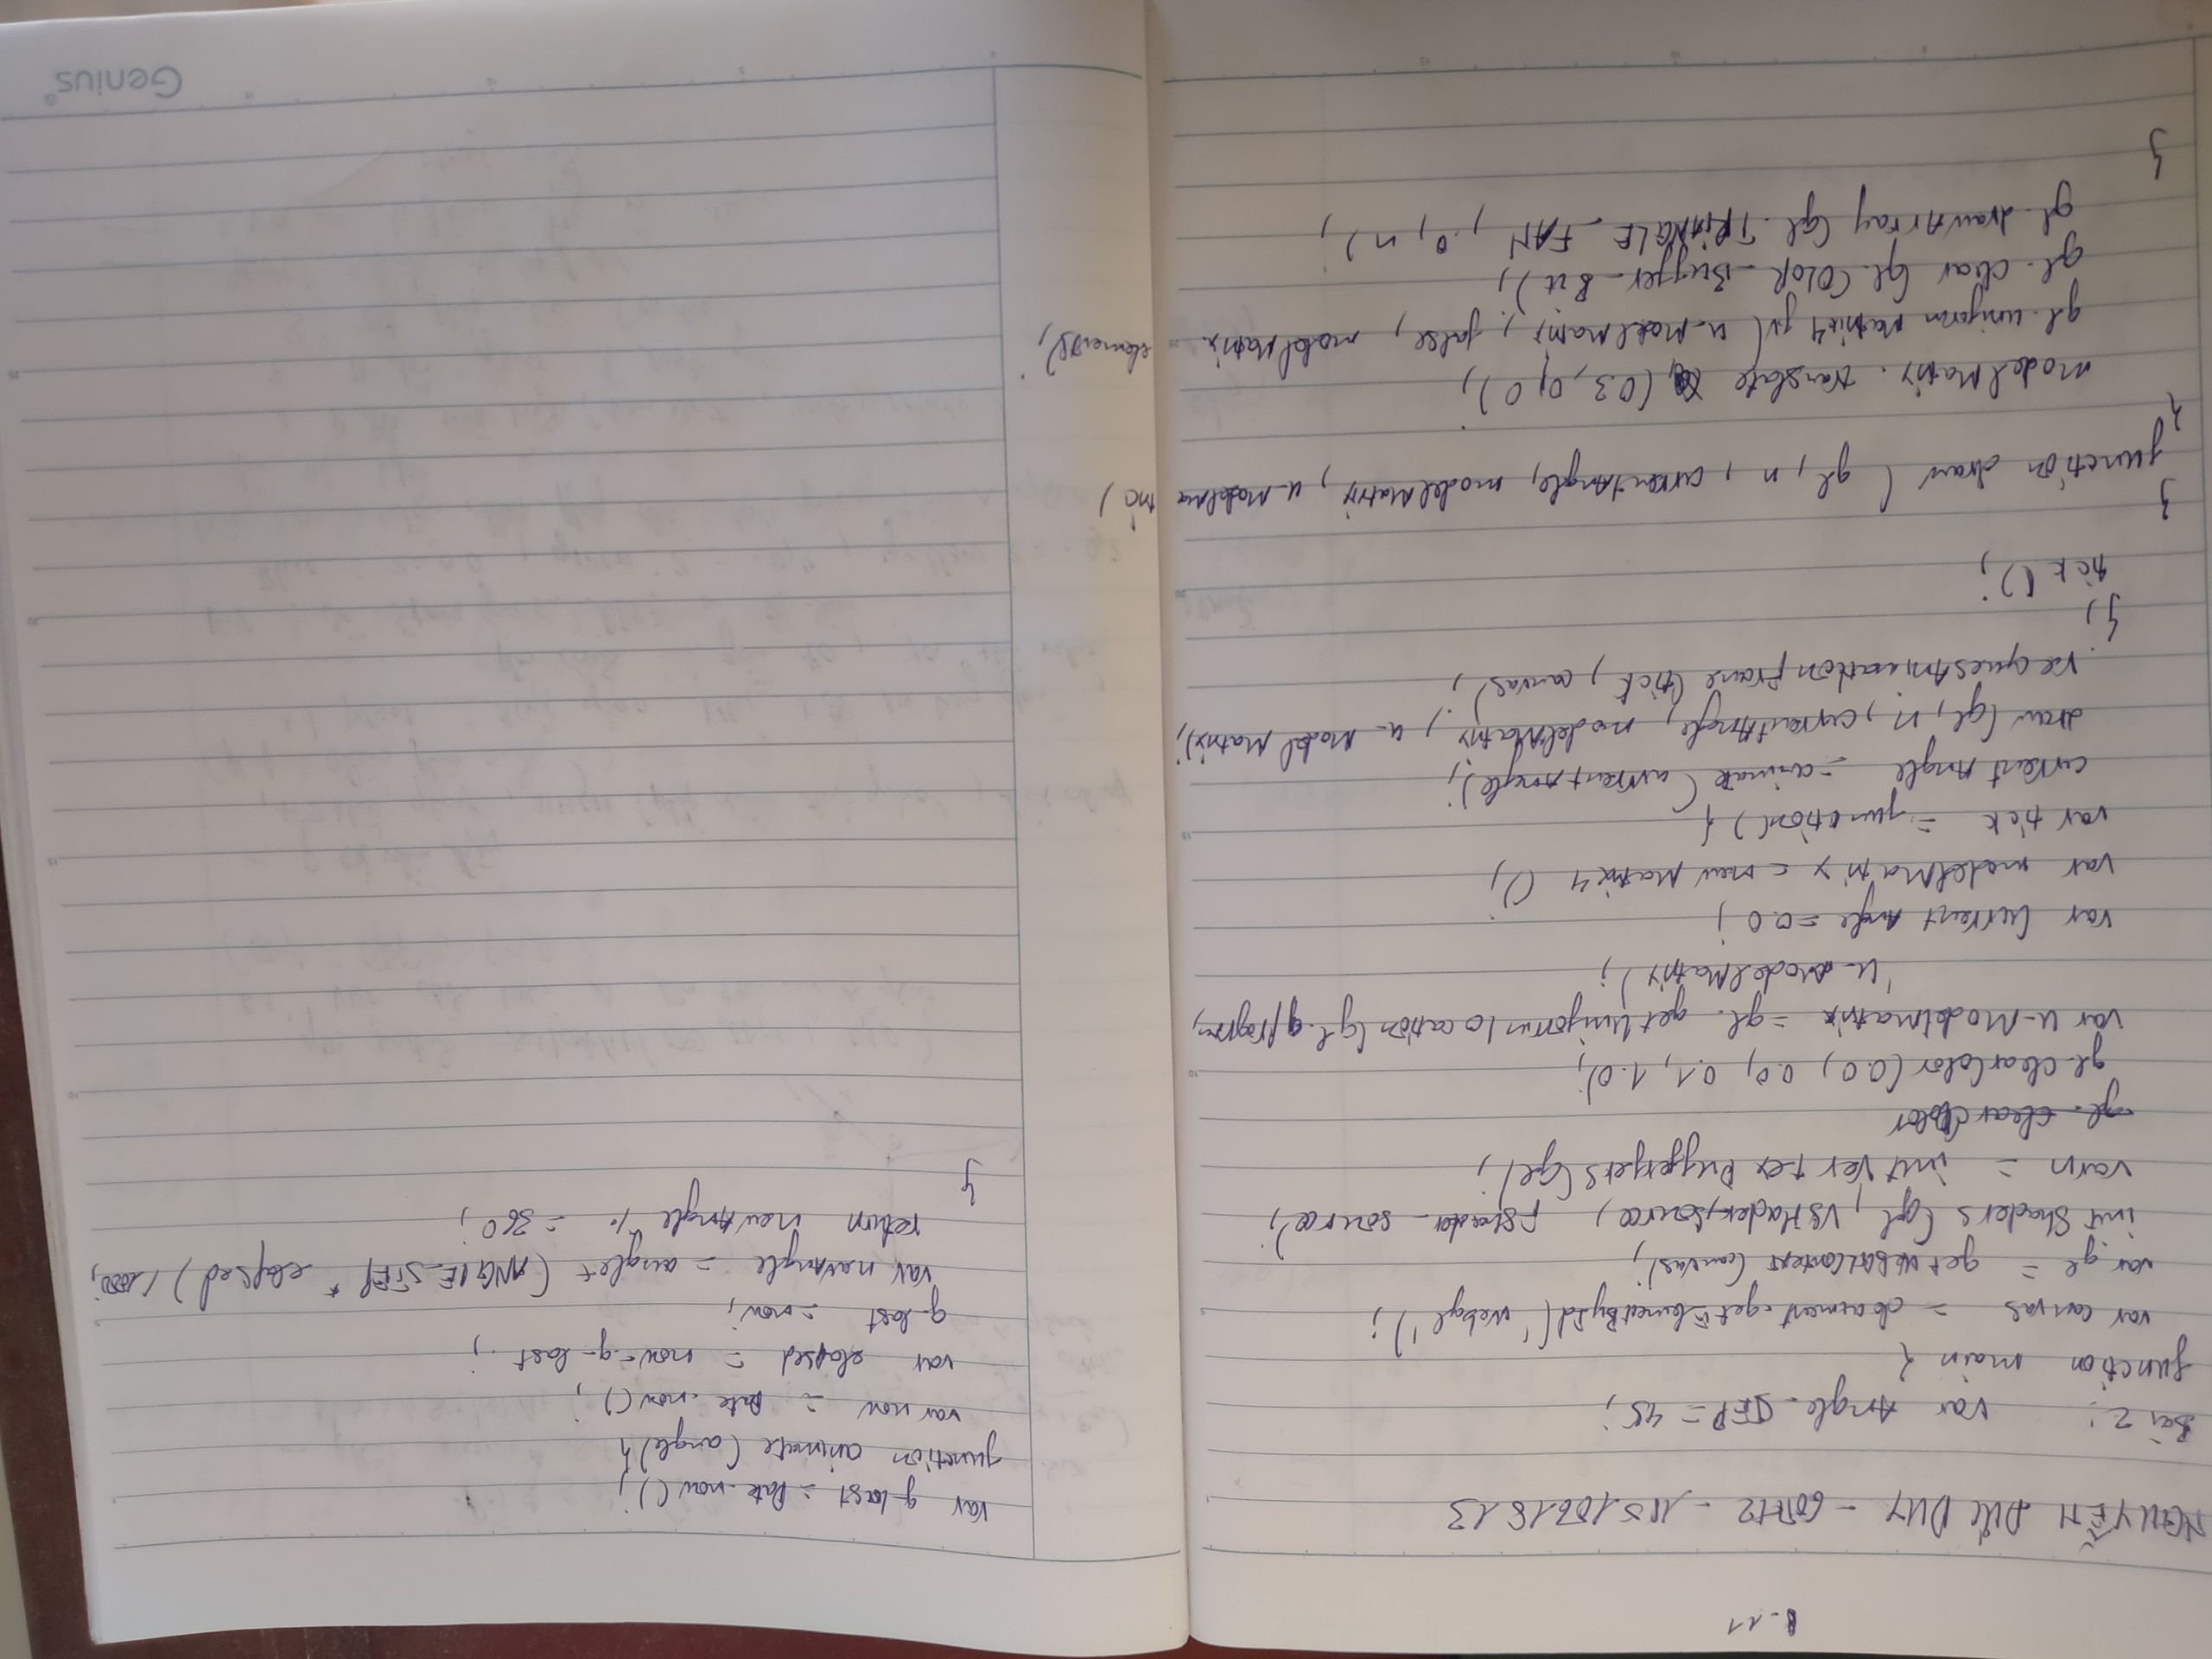 8-11
NGUYỄN ĐỨC DUY - 60TH2 - 1851061813
Bài 2: var Angle_STEP = 45;
function main {
var canvas = document.getElementById('webgl');
var gl = getWebGLContext (canvas);
initShaders (gl, VSHader_source, FShader_source);
var n = initVertexBuffers(gl);
gl.clearColor
gl.clearColor(0.0, 0.0, 0.1, 1.0);
var u-ModelMatrix = gl.getUniformlocation (gl.program,
'u-ModelMatrix);
var CurrentAngle = 0.0;
var modelMatrix = new Matrix4 ();
var tick = function() {
currentAngle = animate (currentAngle);
draw (gl, n, currentAngle, modelMatrix, u-ModelMatrix);
requesAnimationFrame (tick, canvas);
};
tick ();
}
function draw ( gl, n, currentAngle, modelMatrix, u-ModelMatrix)
{
modelMatrix. translate (0.3, 0, 0);
gl.uniformMatrix4fv( u-ModelMatrix, false, modelMatrix.elements);
gl.clear (gl.COLOR_Buffer_Bit);
gl.drawArray (gl.TRIANGLE_FAN, 0, n);
}
var g-last = Date.now();
function animate (angle) {
var now = Date.now();
var elapsed = now - g-last;
g-last = now;
var newAngle = angle + (ANGLE_STEP * elapsed) / 1000;
return newAngle % = 360;
}
Genius